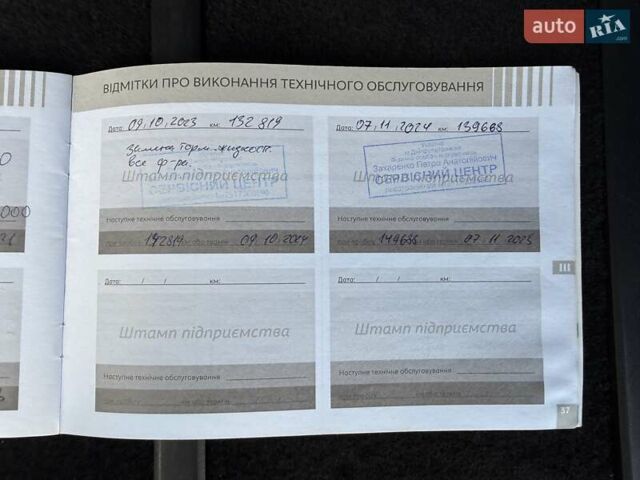 auto RIA .com
ВІДМІТКИ ПРО ВИКОНАННЯ ТЕХНІЧНОГО ОБСЛУГОВУВАННЯ
Дата: 09, 10, 2023 км: 132 819
Замена торм. жидкост.
все ф-ры.
Штамп підприємства
СЕРВІСНИЙ ЦЕНТР
Наступне технічне обслуговування
142819 09.10.2024
Дата: 07, 11, 2024 км: 139688
Захаренко Петро Анатолійович
СЕРВІСНИЙ ЦЕНТР
Штамп підприємства
Наступне технічне обслуговування
149688 07 11 2025
Дата: / / км:
Штамп підприємства
Наступне технічне обслуговування
Дата: / / км:
Штамп підприємства
Наступне технічне обслуговування
III
37
000